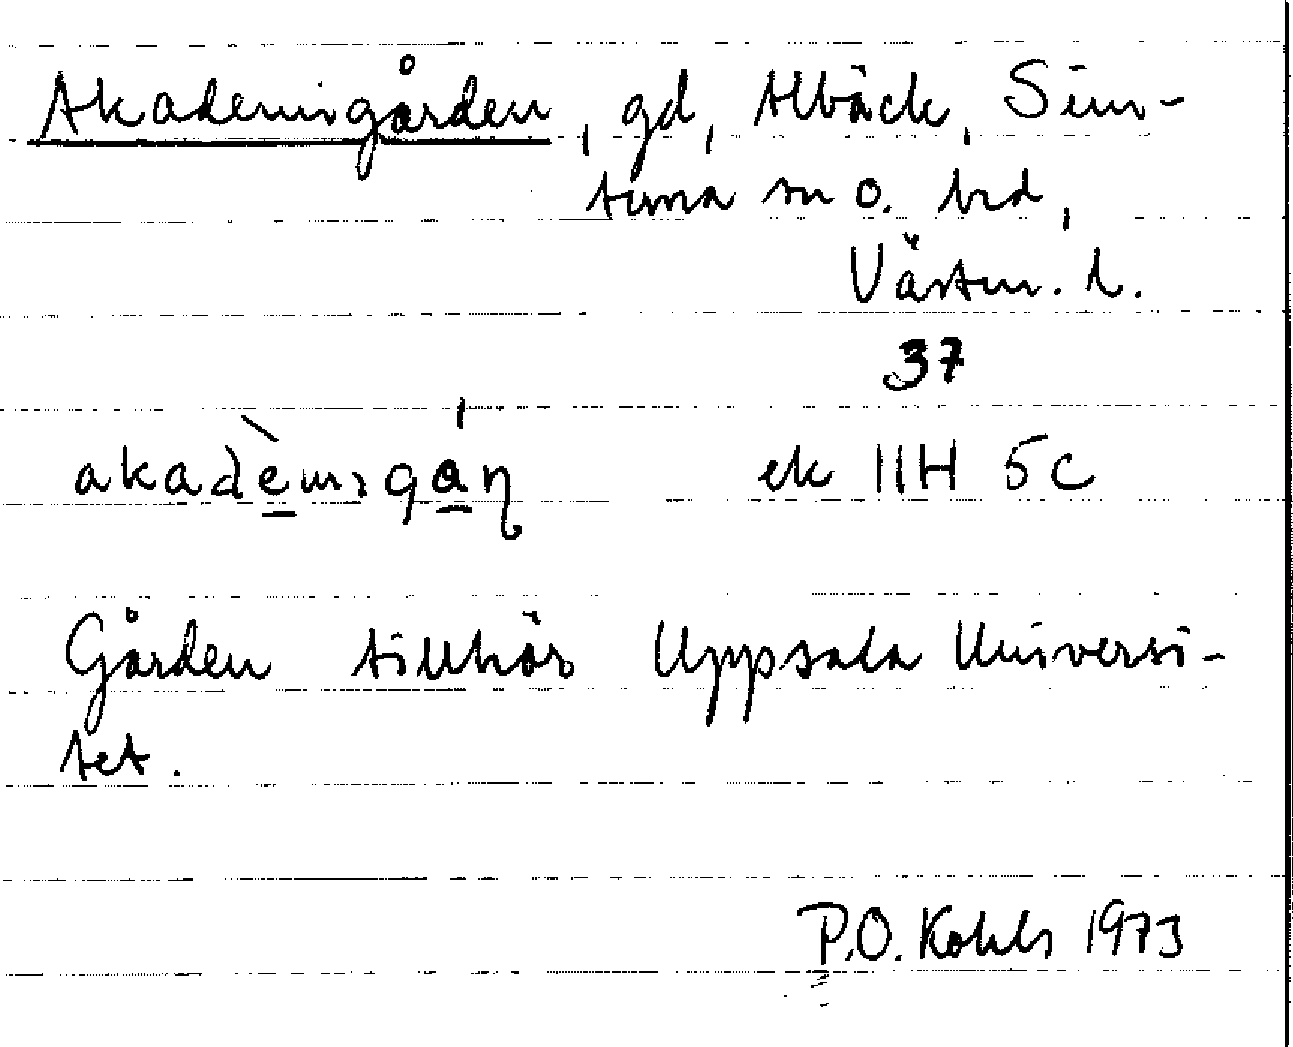 Akademigården, gd, Albäck, Sim-
tuna sn o. hd,
Västm. l.
37
akadèmıgán ek 11H 5c
Gården tillhör Uppsala Universi-
tet.
P.O. Kohls 1973